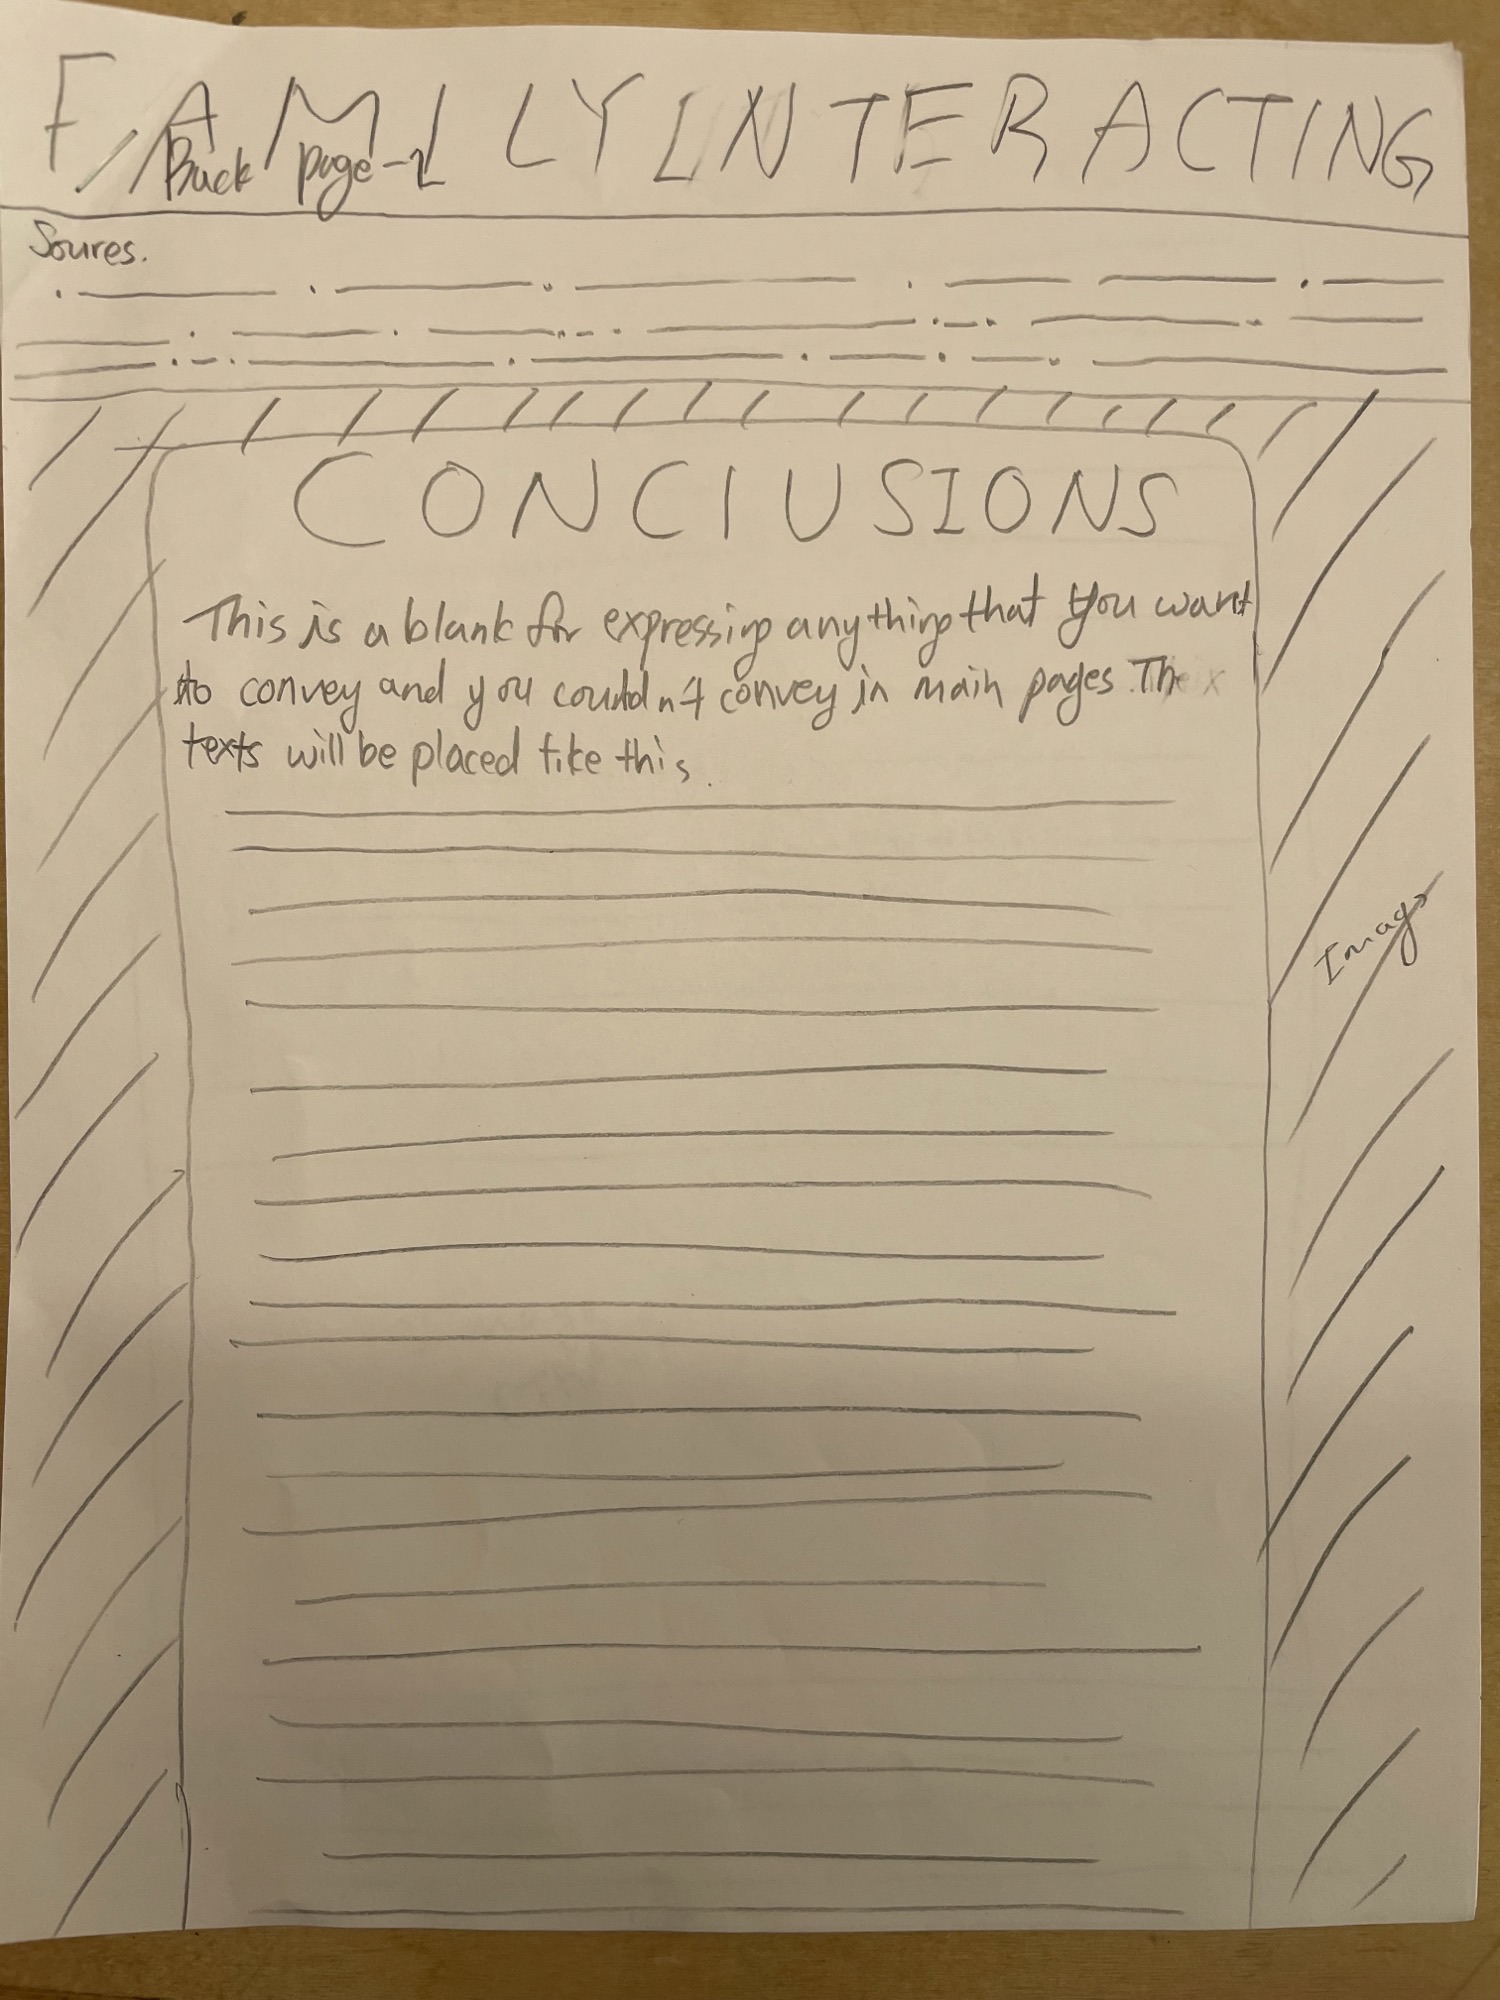 FAMILY INTERACTING
Back page-2
Soures.
CONCLUSIONS
This is a blank for expressing anything that you want
to convey and you couldn't convey in main pages The
texts will be placed like this.
Image